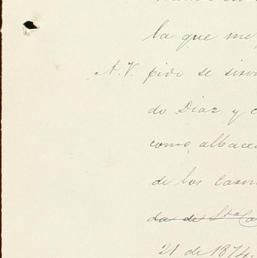 la que me
A.V. pido se sirv
do Diaz y c
como albacea
de los Casa
da de Sta Ca
21 de 1874.